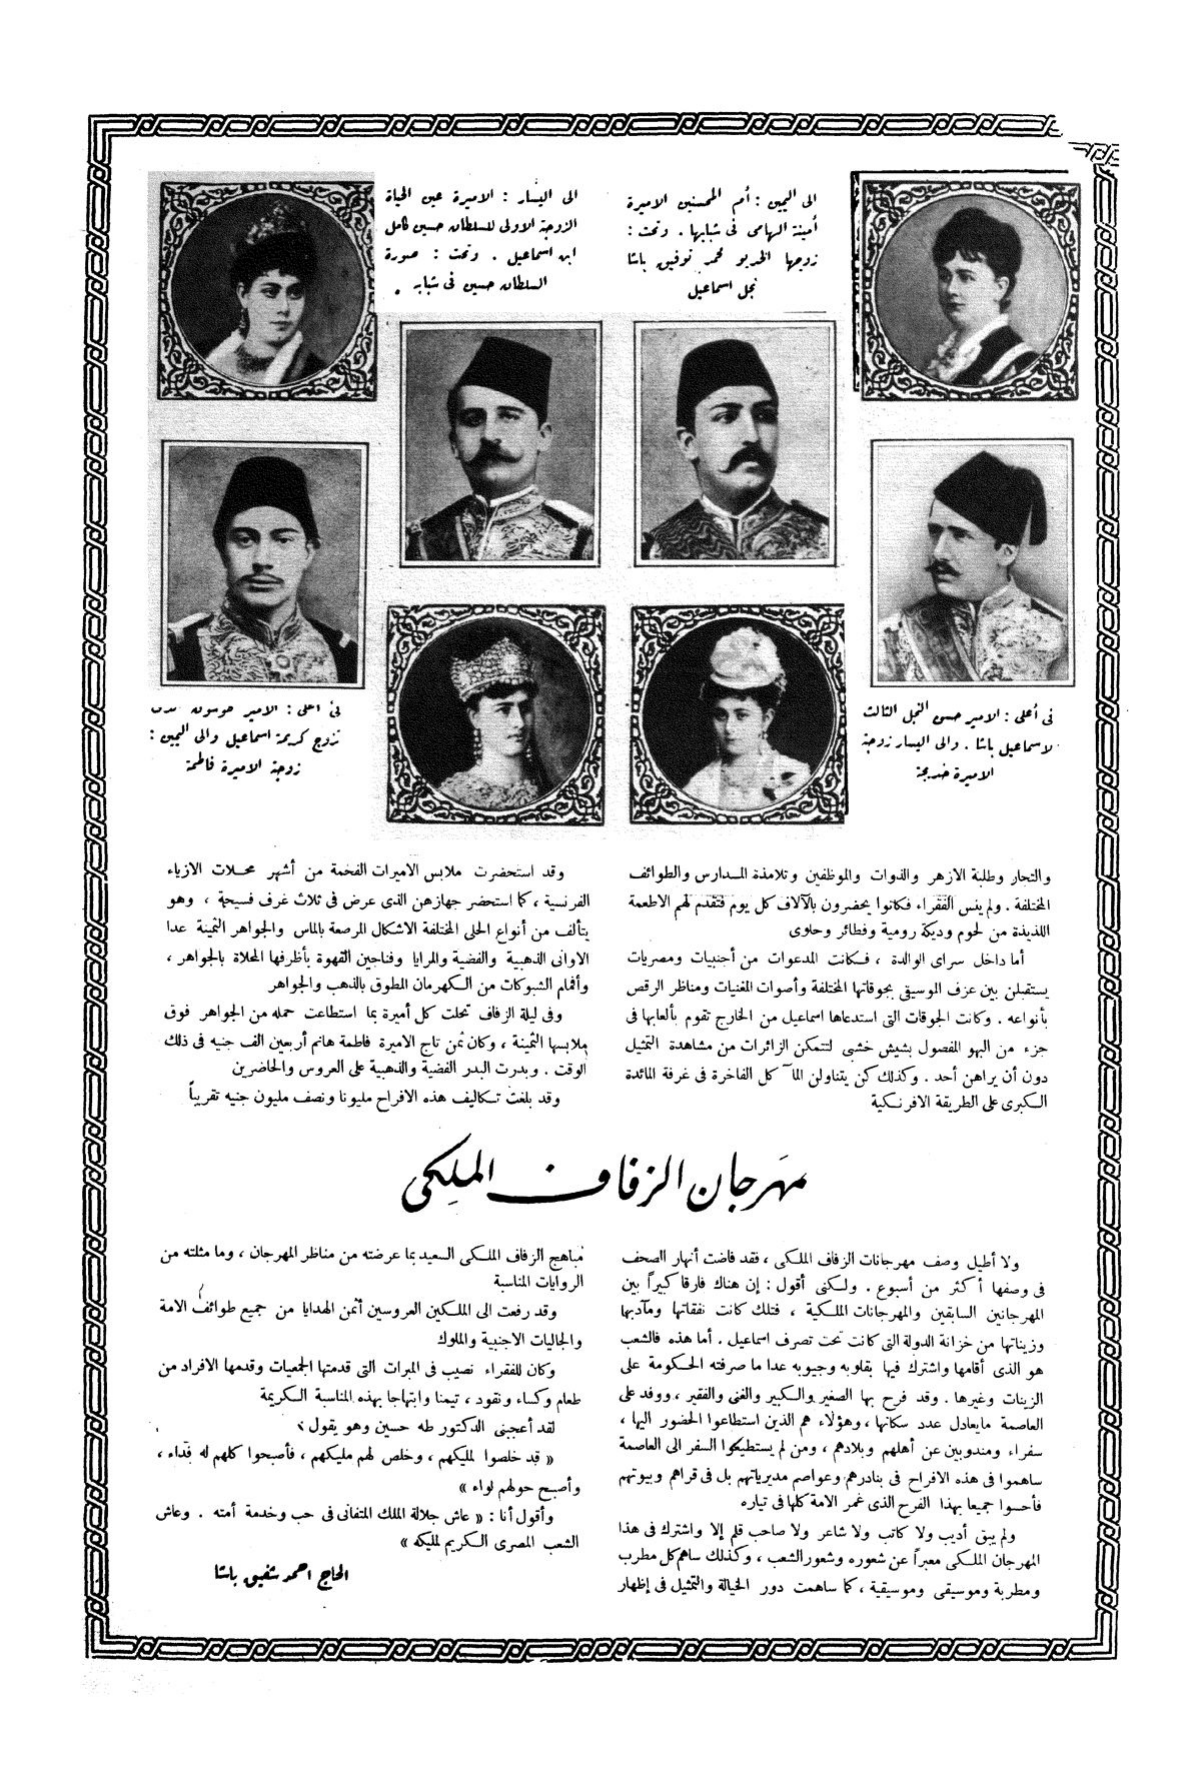 الى اليمين : أم المحسنين الاميرة
أمينة الهامى فى شبابها . وتحت :
زوجها الخديو محمد توفيق باشا
نجل اسماعيل
الى اليسار : الاميرة عين الحياة
الزوجة الاولى للسلطان حسين كامل
ابن اسماعيل . وتحت : صورة
السلطان حسين فى شبابه .
فى أعلى : الامير حسن النجل الثالث
لاسماعيل باشا . والى اليسار زوجة
الاميرة خديجة
فى اعلى : الامير طوسون
تزوج كريمة اسماعيل والى اليمين :
زوجة الاميرة فاطمة
والتجار وطلبة الازهر والذوات والموظفين وتلامذة المدارس والطوائف
المختلفة . ولم ينس الفقراء فكانوا يحضرون بالآلاف كل يوم فتقدم لهم الاطعمة
اللذيذة من لحوم وديكة رومية وفطائر وحلوى
أما داخل سراى الوالدة ، فكانت المدعوات من أجنبيات ومصريات
يستقبلن بين عزف الموسيقى بجوقاتها المختلفة وأصوات المغنيات ومناظر الرقص
بأنواعه . وكانت الجوقات التى استدعاها اسماعيل من الخارج تقوم بألعابها فى
جزء من البهو المفصول بشيش خشبى لتتمكن الزائرات من مشاهدة التمثيل
دون أن يراهن أحد . وكذلك كن يتناولن المآ كل الفاخرة فى غرفة المائدة
الكبرى على الطريقة الافرنكية
وقد استحضرت ملابس الاميرات الفخمة من أشهر محلات الازياء
الفرنسية ، كما استحضر جهازهن الذى عرض فى ثلاث غرف فسيحة ، وهو
يتألف من أنواع الحلى المختلفة الاشكال المرصعة بالماس والجواهر الثمينة عدا
الاوانى الذهبية والفضية والمرايا وفناجين القهوة بأظرفها المحلاة بالجواهر ،
وأقمام الشبوكات من الكهرمان المطوق بالذهب والجواهر
وفى ليلة الزفاف تحلت كل أميرة بما استطاعت حمله من الجواهر فوق
ملابسها الثمينة ، وكان ثمن تاج الاميرة فاطمة هانم أربعين الف جنيه فى ذلك
الوقت . وبدرت البدر الفضية والذهبية على العروس والحاضرين
وقد بلغت تكاليف هذه الافراح مليونا ونصف مليون جنيه تقريباً
مهرجان الزفاف الملكى
ولا أطيل وصف مهرجانات الزفاف الملكى ، فقد فاضت أنهار الصحف
فى وصفها أكثر من أسبوع . ولكنى أقول : إن هناك فارقا كبيراً بين
المهرجانين السابقين والمهرجانات الملكية ، فتلك كانت نفقاتها ومآدبها
وزيناتها من خزانة الدولة التى كانت تحت تصرف اسماعيل . أما هذه فالشعب
هو الذى أقامها واشترك فيها بقلوبه وجيوبه عدا ما صرفته الحكومة على
الزينات وغيرها . وقد فرح بها الصغير والكبير والغنى والفقير ، ووفد على
العاصمة مايعادل عدد سكانها ، وهؤلاء هم الذين استطاعوا الحضور اليها ،
سفراء ومندوبين عن أهلهم وبلادهم ، ومن لم يستطيعوا السفر الى العاصمة
ساهموا فى هذه الافراح فى بنادرهم وعواصم مديرياتهم بل فى قراهم وبيوتهم
فأحسوا جميعا بهذا الفرح الذى غمر الامة كلها فى تياره
ولم يبق أديب ولا كاتب ولا شاعر ولا صاحب قلم إلا واشترك فى هذا
المهرجان الملكى معبراً عن شعوره وشعور الشعب ، وكذلك ساهم كل مطرب
ومطربة وموسيقى وموسيقية ، كما ساهمت دور الخيالة والتمثيل فى إظهار
مباهج الزفاف الملكى السعيد بما عرضته من مناظر المهرجان ، وما مثلته من
الروايات المناسبة
وقد رفعت الى الملكين العروسين أثمن الهدايا من جميع طوائف الامة
والجاليات الاجنبية والملوك
وكان للفقراء نصيب فى المبرات التى قدمتها الجمعيات وقدمها الافراد من
طعام وكساء ونقود ، تيمنا وابتهاجا بهذه المناسبة الكريمة
لقد أعجبنى الدكتور طه حسين وهو يقول :
« قد خلصوا لمليكهم ، وخلص لهم مليكهم ، فأصبحوا كلهم له فداء ،
وأصبح حولهم لواء »
وأقول أنا : « عاش جلالة الملك المتفانى فى حب وخدمة أمته . وعاش
الشعب المصرى الكريم لمليكه »
الحاج احمد شفيق باشا